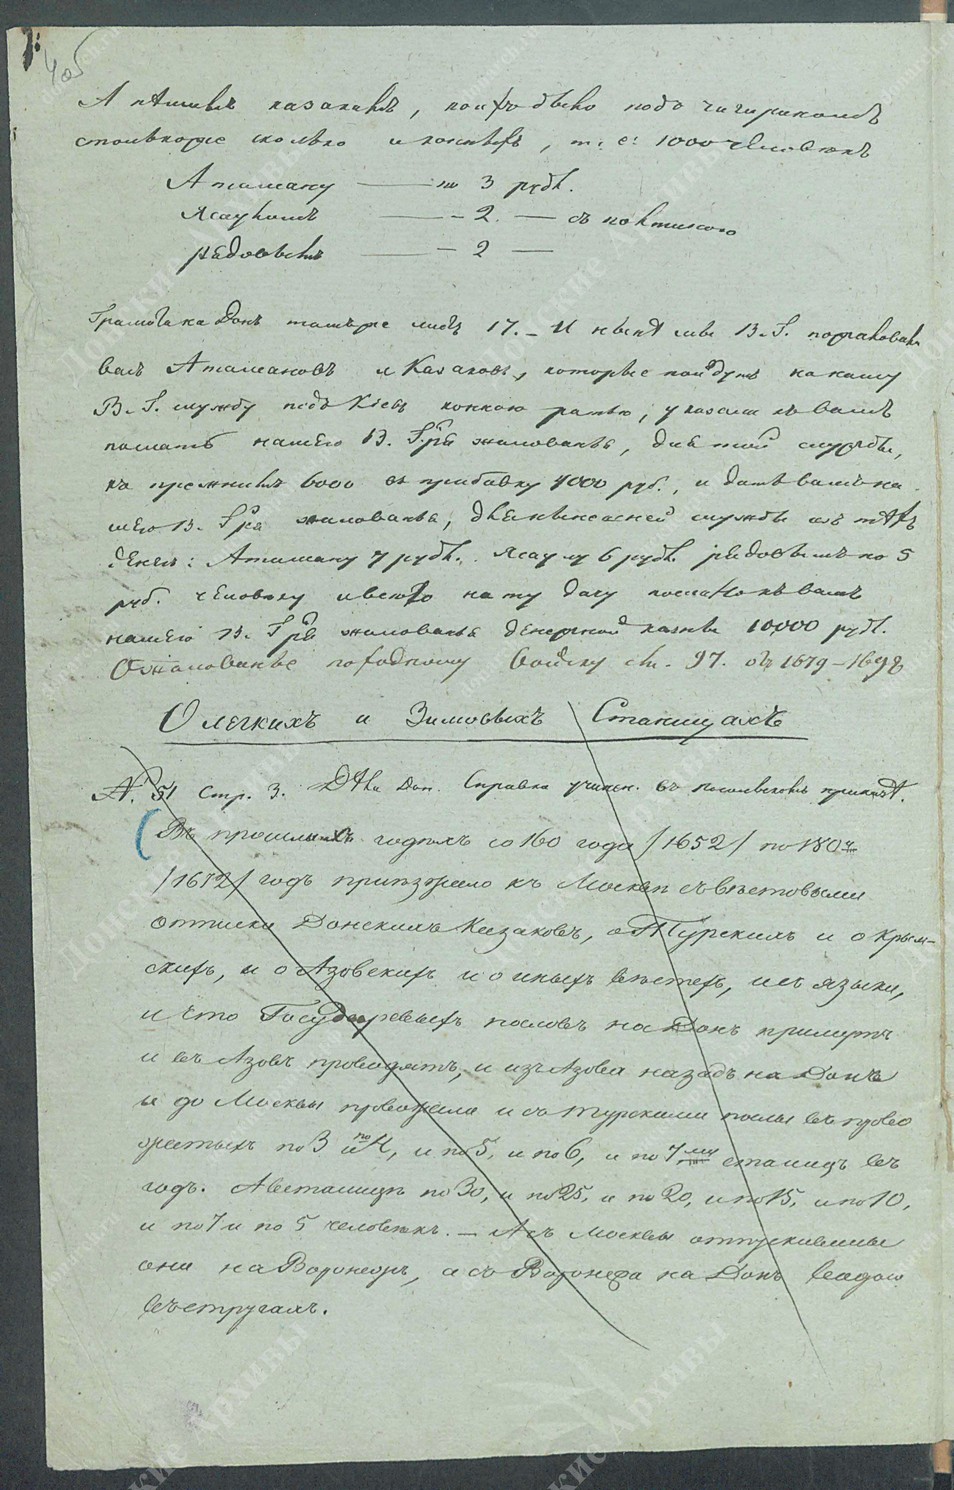 4об
А пѣшимъ казакамъ, коихъ было подъ Чигириномъ
столькоже сколько и конныхъ, т: е: 1000 человѣкъ
Атаману — по 3 рубл.
Ясауломъ — – 2. — съ полтиною
рядовымъ — – 2 —
Грамота на Донъ томъ же листъ 17. – И нынѣ мы В. Г. пожаловали
васъ Атамановъ и Казаковъ, которые пойдутъ на нашу
В. Г. службу подъ Кіевъ конною ратью, указали къ вамъ
послать нашего В. Г.ря жалованья, для той службы,
къ прежнимъ 6000 въ прибавку 4000 руб., и дать вамъ на
шего В. Г.ря жалованья, для нынѣшней службы изъ тѣхъ
денегъ: Атаману 7 рубл. Ясаулу 6 рубл. рядовымъ по 5
руб. человѣку и всего на ту дачу послано къ вамъ
нашего В. Г.ря жалованья денежной казны 10000 рубл.
О жалованье походному войску ст. 97. объ 1679–1698
О легкихъ и Зимовыхъ Станицахъ
№. 51 Стр. 3. Дѣла Дон. Справка учинен. въ посольскомъ приказѣ.
(Въ прошлыхъ годѣхъ со 160 года /1652/ по 180й
/1672/ годъ пріѣзжало къ Москвѣ съ вѣстовыми
отписки Донскихъ Казаковъ, о Турскихъ и о Крым–
скихъ, и о Азовскихъ и о иныхъ вѣстяхъ, и съ языки,
и что Государевыхъ пословъ на Донъ примутъ
и въ Азовъ проводятъ, и изъ Азова назадъ на Донъ
и до Москвы провожали и съ турскими послы въ прово
жатыхъ по 3 и по 4, и по 5, и по 6, и по 7ми станицъ въ
годъ. А въ станицѣ по 30, и по 25, и по 20, и по 15, и по 10,
и по 7 и по 5 человѣкъ. – А съ Москвы отпускиваны
они на Воронежъ, а съ Воронежа на Донъ водою
въ стругахъ.
Донские Архивы